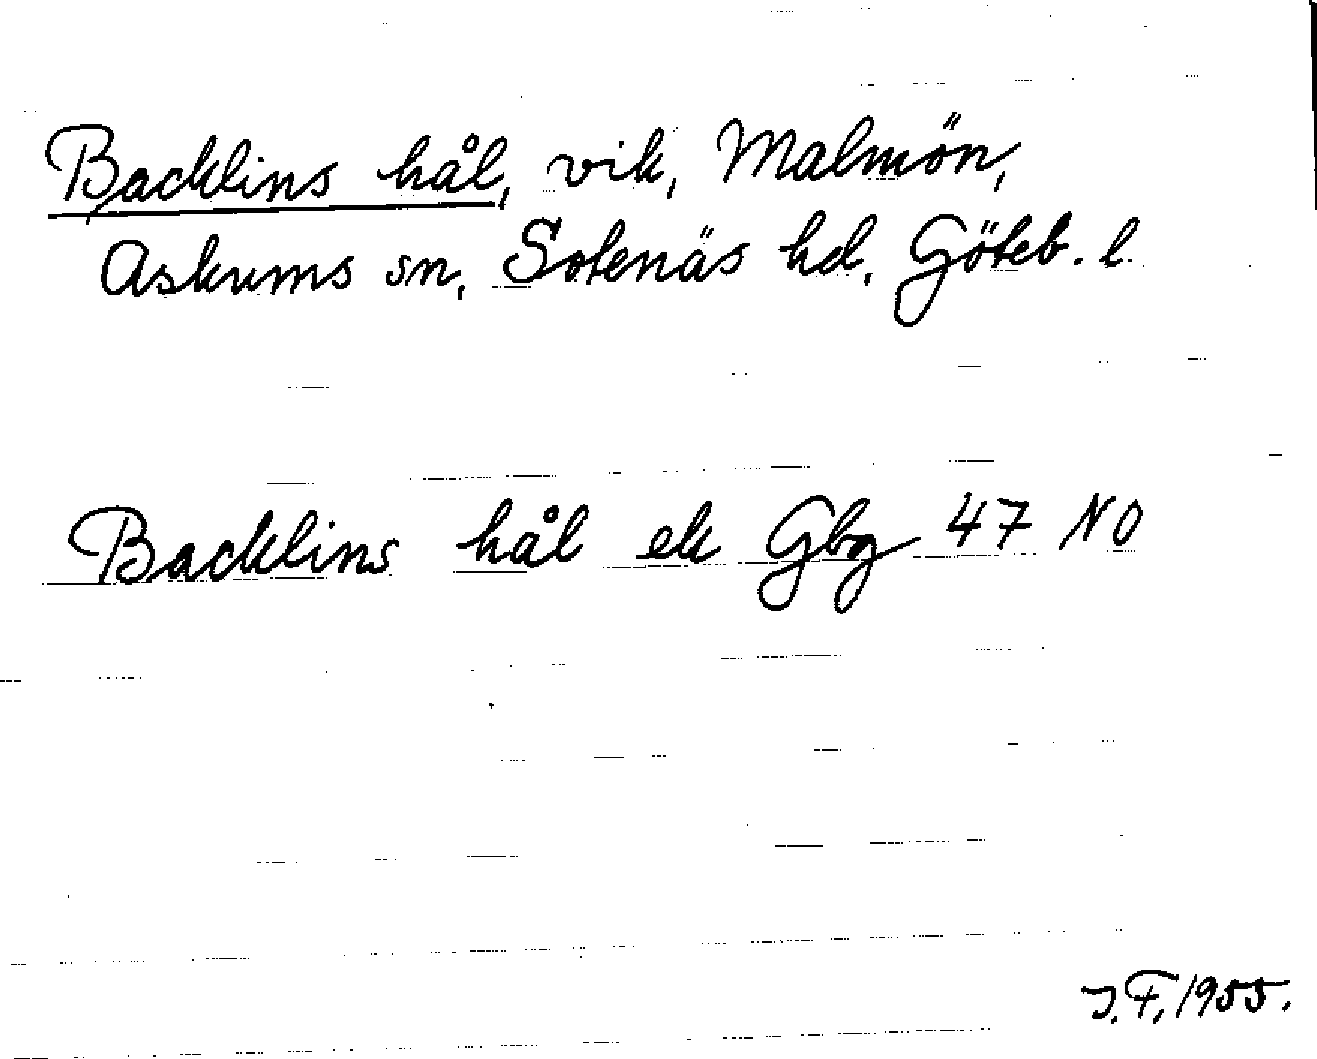 Backlins hål, vik, Malmön,
Askums sn, Sotenäs hd, Göteb. l.
Backlins hål ek Gbg 47 NO
J.F. 1955.